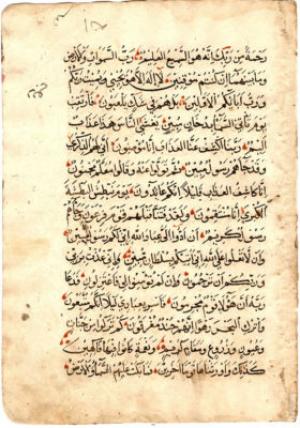 رَحْمَةً مِنْ رَبِّكَ اِنَّهُ هُوَ السَّمِيعُ الْعَلِيمُ رَبِّ السَّمٰوَاتِ وَالْاَرْضِ
وَمَا بَيْنَهُمَا اِنْ كُنْتُمْ مُوقِنِينَ لَا اِلٰهَ اِلَّا هُوَ يُحْيِي وَيُمِيتُ رَبُّكُمْ
وَرَبُّ آبَائِكُمُ الْاَوَّلِينَ بَلْ هُمْ فِي شَكٍّ يَلْعَبُونَ فَارْتَقِبْ
يَوْمَ تَأْتِي السَّمَاءُ بِدُخَانٍ مُبِينٍ يَغْشَى النَّاسَ هٰذَا عَذَابٌ
اَلِيمٌ رَبَّنَا اكْشِفْ عَنَّا الْعَذَابَ اِنَّا مُؤْمِنُونَ اَنّٰى لَهُمُ الذِّكْرٰى
وَقَدْ جَاءَهُمْ رَسُولٌ مُبِينٌ ثُمَّ تَوَلَّوْا عَنْهُ وَقَالُوا مُعَلَّمٌ مَجْنُونٌ
اِنَّا كَاشِفُوا الْعَذَابِ قَلِيلًا اِنَّكُمْ عَائِدُونَ يَوْمَ نَبْطِشُ الْبَطْشَةَ
الْكُبْرٰى اِنَّا مُنْتَقِمُونَ وَلَقَدْ فَتَنَّا قَبْلَهُمْ قَوْمَ فِرْعَوْنَ وَجَاءَهُمْ
رَسُولٌ كَرِيمٌ اَنْ اَدُّوا اِلَيَّ عِبَادَ اللهِ اِنِّي لَكُمْ رَسُولٌ اَمِينٌ
وَاَنْ لَا تَعْلُوا عَلَى اللهِ اِنِّي آتِيكُمْ بِسُلْطَانٍ مُبِينٍ وَاِنِّي عُذْتُ بِرَبِّي
وَرَبِّكُمْ اَنْ تَرْجُمُونِ وَاِنْ لَمْ تُؤْمِنُوا لِي فَاعْتَزِلُونِ فَدَعَا
رَبَّهُ اَنَّ هٰؤُلَاءِ قَوْمٌ مُجْرِمُونَ فَاَسْرِ بِعِبَادِي لَيْلًا اِنَّكُمْ مُتَّبَعُونَ
وَاتْرُكِ الْبَحْرَ رَهْوًا اِنَّهُمْ جُنْدٌ مُغْرَقُونَ كَمْ تَرَكُوا مِنْ جَنَّاتٍ
وَعُيُونٍ وَزُرُوعٍ وَمَقَامٍ كَرِيمٍ وَنَعْمَةٍ كَانُوا فِيهَا فَاكِهِينَ
كَذٰلِكَ وَاَوْرَثْنَاهَا قَوْمًا آخَرِينَ فَمَا بَكَتْ عَلَيْهِمُ السَّمَاءُ وَالْاَرْضُ